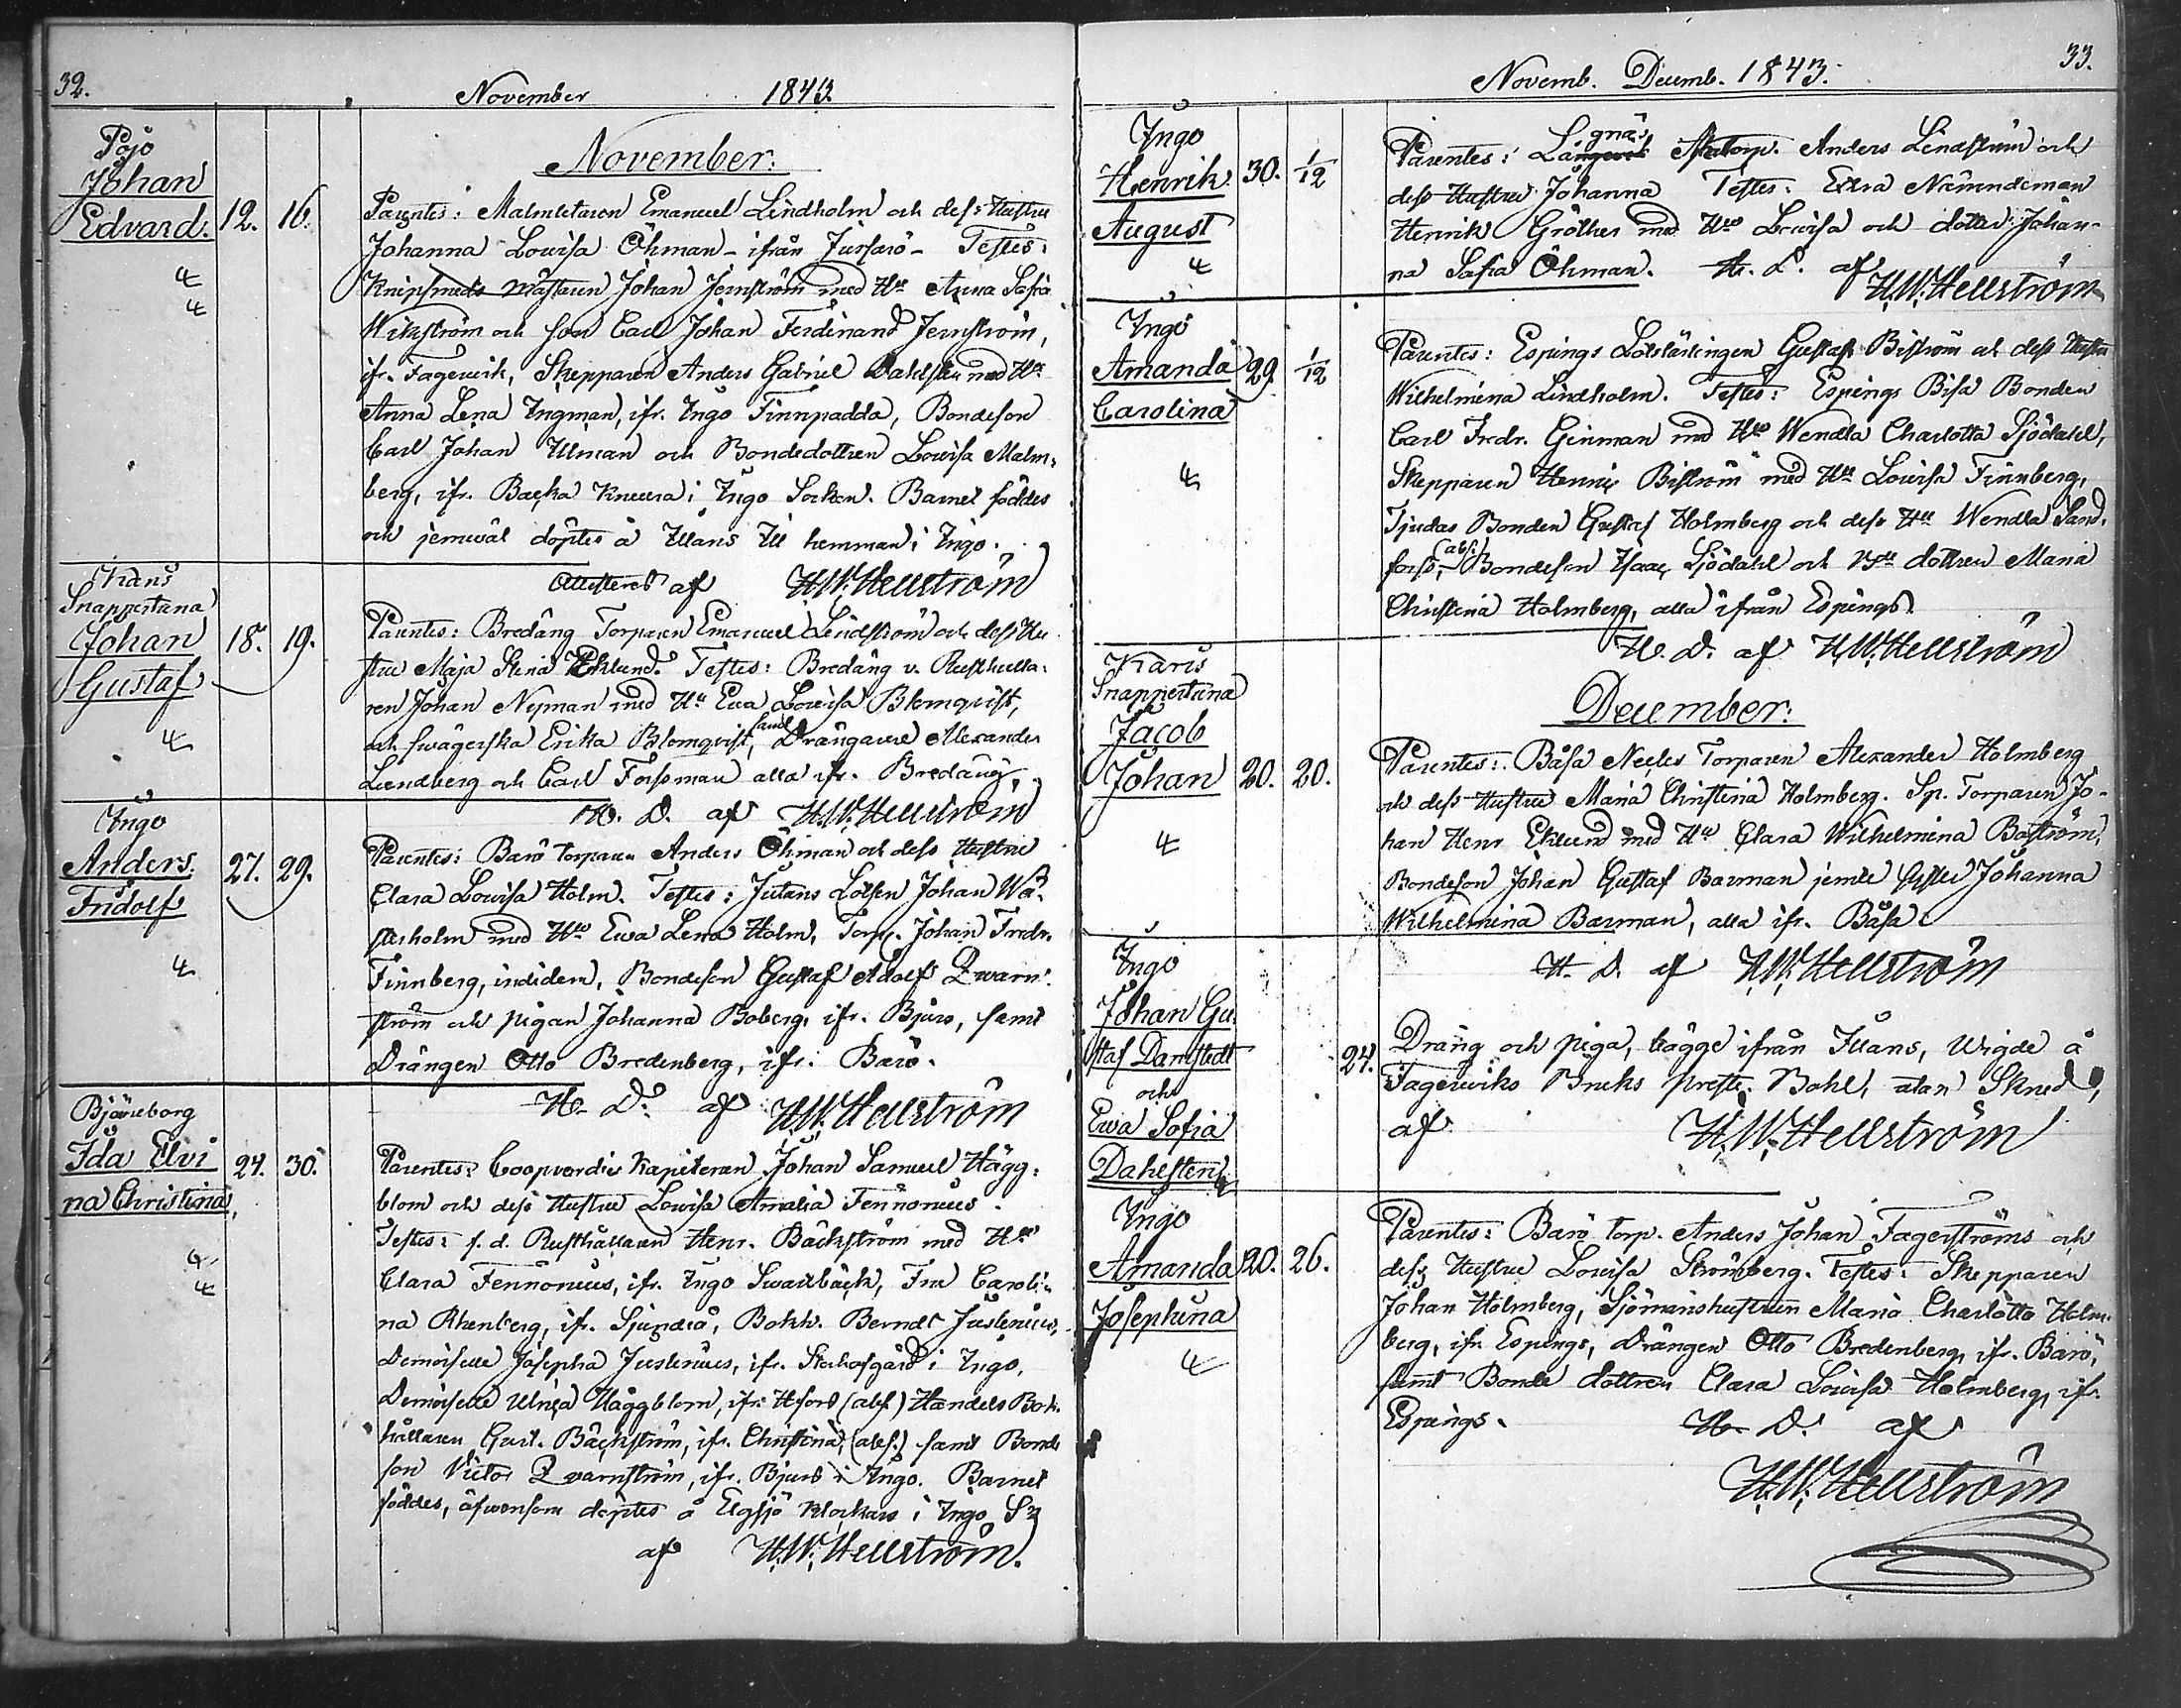 32.
November 1843.
Pojo
Johan
Edvard. 12. 16.
November:
Parentes: Emanuel Lindholm och dess Hustru
Johanna Lowisa Öhman - ifrån Jussarö - Testes:
Knipsmeds mästaren Johan Jernström med Hu Anna Sofia
Wikström och son Carl Johan Ferdinand Jernström,
ifr. Fagerwik, Skepparen Anders Gabriel Dahlsten med Hu
Anna Lena Ingman, ifr. Ingo Finnpadda, Bondeson
Carl Johan Ulman och Bondedottren Lowisa Malm-
berg, ifr. Backa i Ingo Socken. Barnet föddes
och jemwäl döptes å Illans hemman i Ingo.
Attesterad af H.W. Hellström
Karis
Snappertuna
Johan
Gustaf 18. 19.
Parentes: Bredäng Torparen Emanuel Lindström och dess Hu
stru Maja Stina Eklund. Testes: Bredäng v. Rusthålla-
ren Johan Nyman med Hu Ewa Lowisa Blomqvist,
och swägerska Erika Blomqvist, samt Drängarne Alexander
Lundberg och Carl Forssman alla ifr. Bredäng.
H. D. af H.W. Hellström
Ingo
Anders
Fridolf 27. 29.
Parentes: Barö torparen Anders Öhman och dess Hustru
Clara Lowisa Holm. Testes: Lotsen Johan We-
sterholm med Hu Ewa Lena Holm, Torp. Johan Fredr.
Finnberg, indidem, Bondeson Gustaf Adolf Qwarn-
ström och pigan Johanna Boberg, ifr. Bjurs, samt
Drängen Otto Bredenberg, ifr. Barö.
H. D. af H.W. Hellström
Björneborg
Ida Elvi
na Christina, 24. 30.
Parentes: Coopverdie Kapitenen Johan Samuel Hägg-
blom och dess Hustru Lowisa Amalia Fennonius.
Testes: f. d. Rusthållaren Henr. Bäckström med Hu
Clara Fennonius, ifr. Ingo Swartbäck, Fru Caroli-
na Rhenberg, ifr. Sjundeå, Bokh. Berndt Juslenius,
Demoiselle Josepha Juslenius, ifr. i Ingo,
Demoiselle Ulrica Häggblom, ifr. Hfors (abs.) Handels Bok-
hållaren Gust. Bäckström, ifr. Christina, (abs.) samt Bonde
son Victor Qvarnström, ifr. Bjurs i Ingo. Barnet
föddes, äfwensom döptes å Elgsjö Klockars i Ingo Sn
af H.W. Hellström.
Novemb. Decemb. 1843. 33.
Ingo
Henrik
August 30. 1/12
Parentes: Anders Lindström och
dess Hustru Johanna Testes: Extra Nämndeman
Henrik Gröther med Hu Lowisa och dotter Johan-
na Sofia Öhman. H. D. af
H.W. Hellström
Ingo
Amanda
Carolina 29. 1/12
Parentes: Espings Lotslärlingen Gustaf Biström och dess Hustru
Wilhelmina Lindholm. Testes: Espings Bisa Bonden
Carl Fredr. Ginman med Hu Wendla Charlotta Sjödahl,
Skepparen Henric Biström med Hu Lowisa Finnberg,
Tjudas Bonden Gustaf Holmberg och dess Hu Wendla Sand-
forss, (abs.) Bondeson Isaac Sjödahl och dottren Maria
Christina Holmberg, alla ifrån Espings.
H. D. af H.W. Hellström
December:
Karis
Snappertuna
Jacob
Johan 20. 20.
Parentes: Båsa Torparen Alexander Holmberg
och dess Hustru Maria Christina Holmberg. Sp. Torparen Jo-
han Henr Eklund med Hu Clara Wilhelmina Boström,
Bondeson Johan Gustaf Barman jemte syster Johanna
Wilhelmina Barman, alla ifr. Båsa.
H. D. af H.W. Hellström
Ingo
Johan Gu-
staf Damstedt
och
Ewa Sofia
Dahlsten 24.
Dräng och piga, bägge ifrån Illans, wigde å
Fagerwiks Bruks prest. Bohl, utan Skrud,
af H.W. Hellström
Ingo
Amanda
Josephina 20. 26.
Parentes: Barö torp. Anders Johan Fagerströms och
dess Hustru Lowisa Strömberg. Testes: Skepparen
Johan Holmberg, Sjömanshustrun Maria Charlotta Holm-
berg, ifr. Espings, Drängen Otto Bredenberg, ifr. Barö,
samt Bonde dottren Clara Lowisa Holmberg, ifr.
Espings. H. D. af
H.W. Hellström